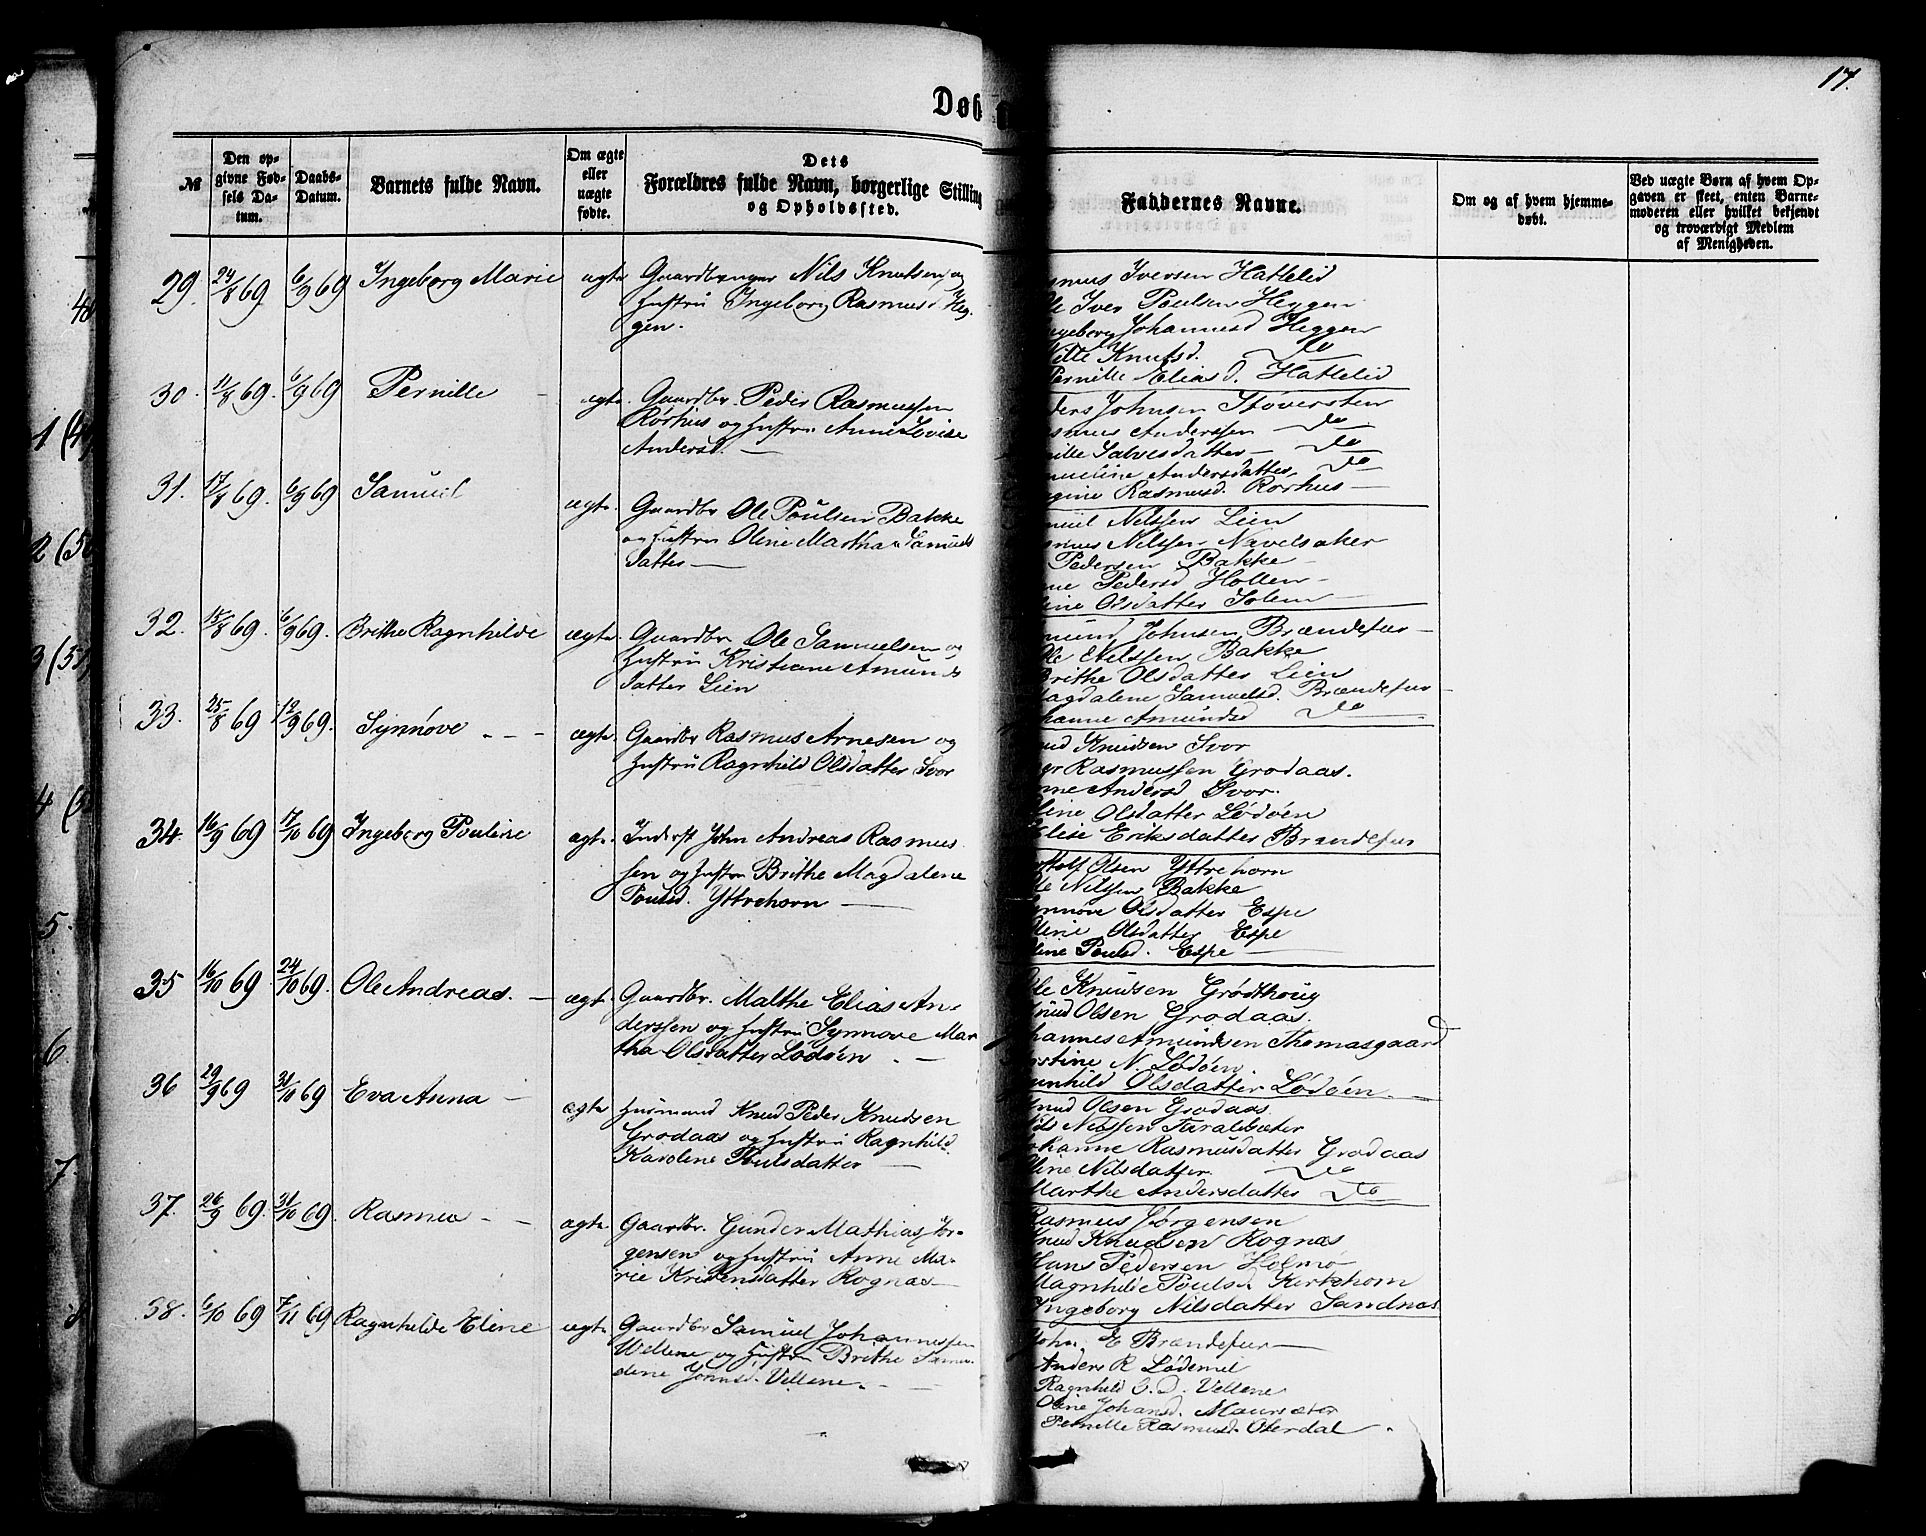 17.
Døb
№
Den opgivne Fødsels Datum.
Daabs-Datum.
Barnets fulde Navn.
Om ægte eller uægte fødte.
Dets Forældres fulde Navn, borgerlige Stilling og Opholdssted.
Faddernes Navne.
Om og af hvem hjemmedøbt.
Ved uægte Børn af hvem Opgaven er skeet, enten Barnemoderen eller hvilket bekjendt og troværdigt Medlem af Menigheden.
29. 24/8 69 6/9 69 Ingeborg Marie ægte Gaardbruger Nils Knutsen og
Hustru Ingeborg Rasmusd. Heg-
gen.
Iversen Hatlelid
Iver Poulsen Heggen
Johannesd Heggen
Knutsd. Do
Pernille Eliasd. Hatlelid
30. 11/8 69. 6/9 69 Pernille ægte Gaardbr. Peder Rasmussen
Rørhus og Hustru Anne Lovise
Andersd.
Johnsen Støversten
Anderssen Do
Do
Andersdatter Do
Rasmusd. Rørhus
31. 17/8 69. 6/9 69 Samuel ægte. Gaardbr Ole Poulsen Bakke
og Hustru Olene Martha Samuels
datter
Nilssen Lien
Nilssen Navelsaker
Pedersen Bakke
Pedersd Hollen
Olsdatter Solem
32. 15/8 69. 6/9 69. Brithe Ragnhilde ægte. Gaardbr Ole Samuelsen og
Hustru Kristiane Amunds
datter Lien
Johnsen Brændefur
Nilssen Bakke
Brithe Olsdatter Lien
Magdalene Samuelsd. Brændefur
Amundsd Do
33. 25/8 69 12/9 69. Synnøve ægte. Gaardbr Rasmus Arnesen og
Hustru Ragnhild Olsdatter Svor
Knudsen Svor
Rasmussen Grodaas.
Andersd Svor.
Olsdatter Lødøen
Elise Eriksdatter Brændefur
34. 16/9 69 17/10 69 Ingeborg Pouline ægte. Inderst John Andreas Rasmus
sen og Hustru Brithe Magdalene
Poulsd. Yttrehorn
Olsen Yttrehorn
Nilssen Bakke
Olsdatter Espe
Olsdatter Espe
Poulsd. Espe
35 16/10 69 24/10 69. Ole Andreas. ægte Gaardbr. Malthe Elias An-
derssen og Hustru Synnøve Mar
tha Olsdatter Lødøen
Knudsen Grødthoug
Olsen Grodaas.
Amundsen Thomasgaard
N. Lødøen
Olsdatter Lødøen.
36 29/9 69 31/10 69 Eva Anna ægte Husmand Knud Peder Knudsen
Grodaas og Hustru Ragnhild
Karolene Poulsdatter
Olsen Grodaas
Nilssen Taraldsæter
Rasmusdatter Grodaas
Nilsdatter. Do
Marthe Andersdatter Do
37. 26/9 69. 31/10 69. Rasmus ægte Gaardbr. Gunder Mathias Jør-
gensen og Hustru Anne Ma-
rie Kristensdatter Rognas
Rasmus Jørgensen
Knud Knudsen Rognas
Hans Pedersen Holmo
Magnhilde Poulsd. Kirkehorn
Ingeborg Nilsdatter Sandnæs
38. 6/10 69 7/11 69 Ragnhilde Eline ægte Gaardbr Samuel Johannessen
Vellene og Hustru Brithe
Johnsd. Vellene.
John E Brændefur
Anders R Lødemel
Ragnhild S. D. Vellene
Oline Johansd. Maursæter
Pernille Rasmusd. Osterdal